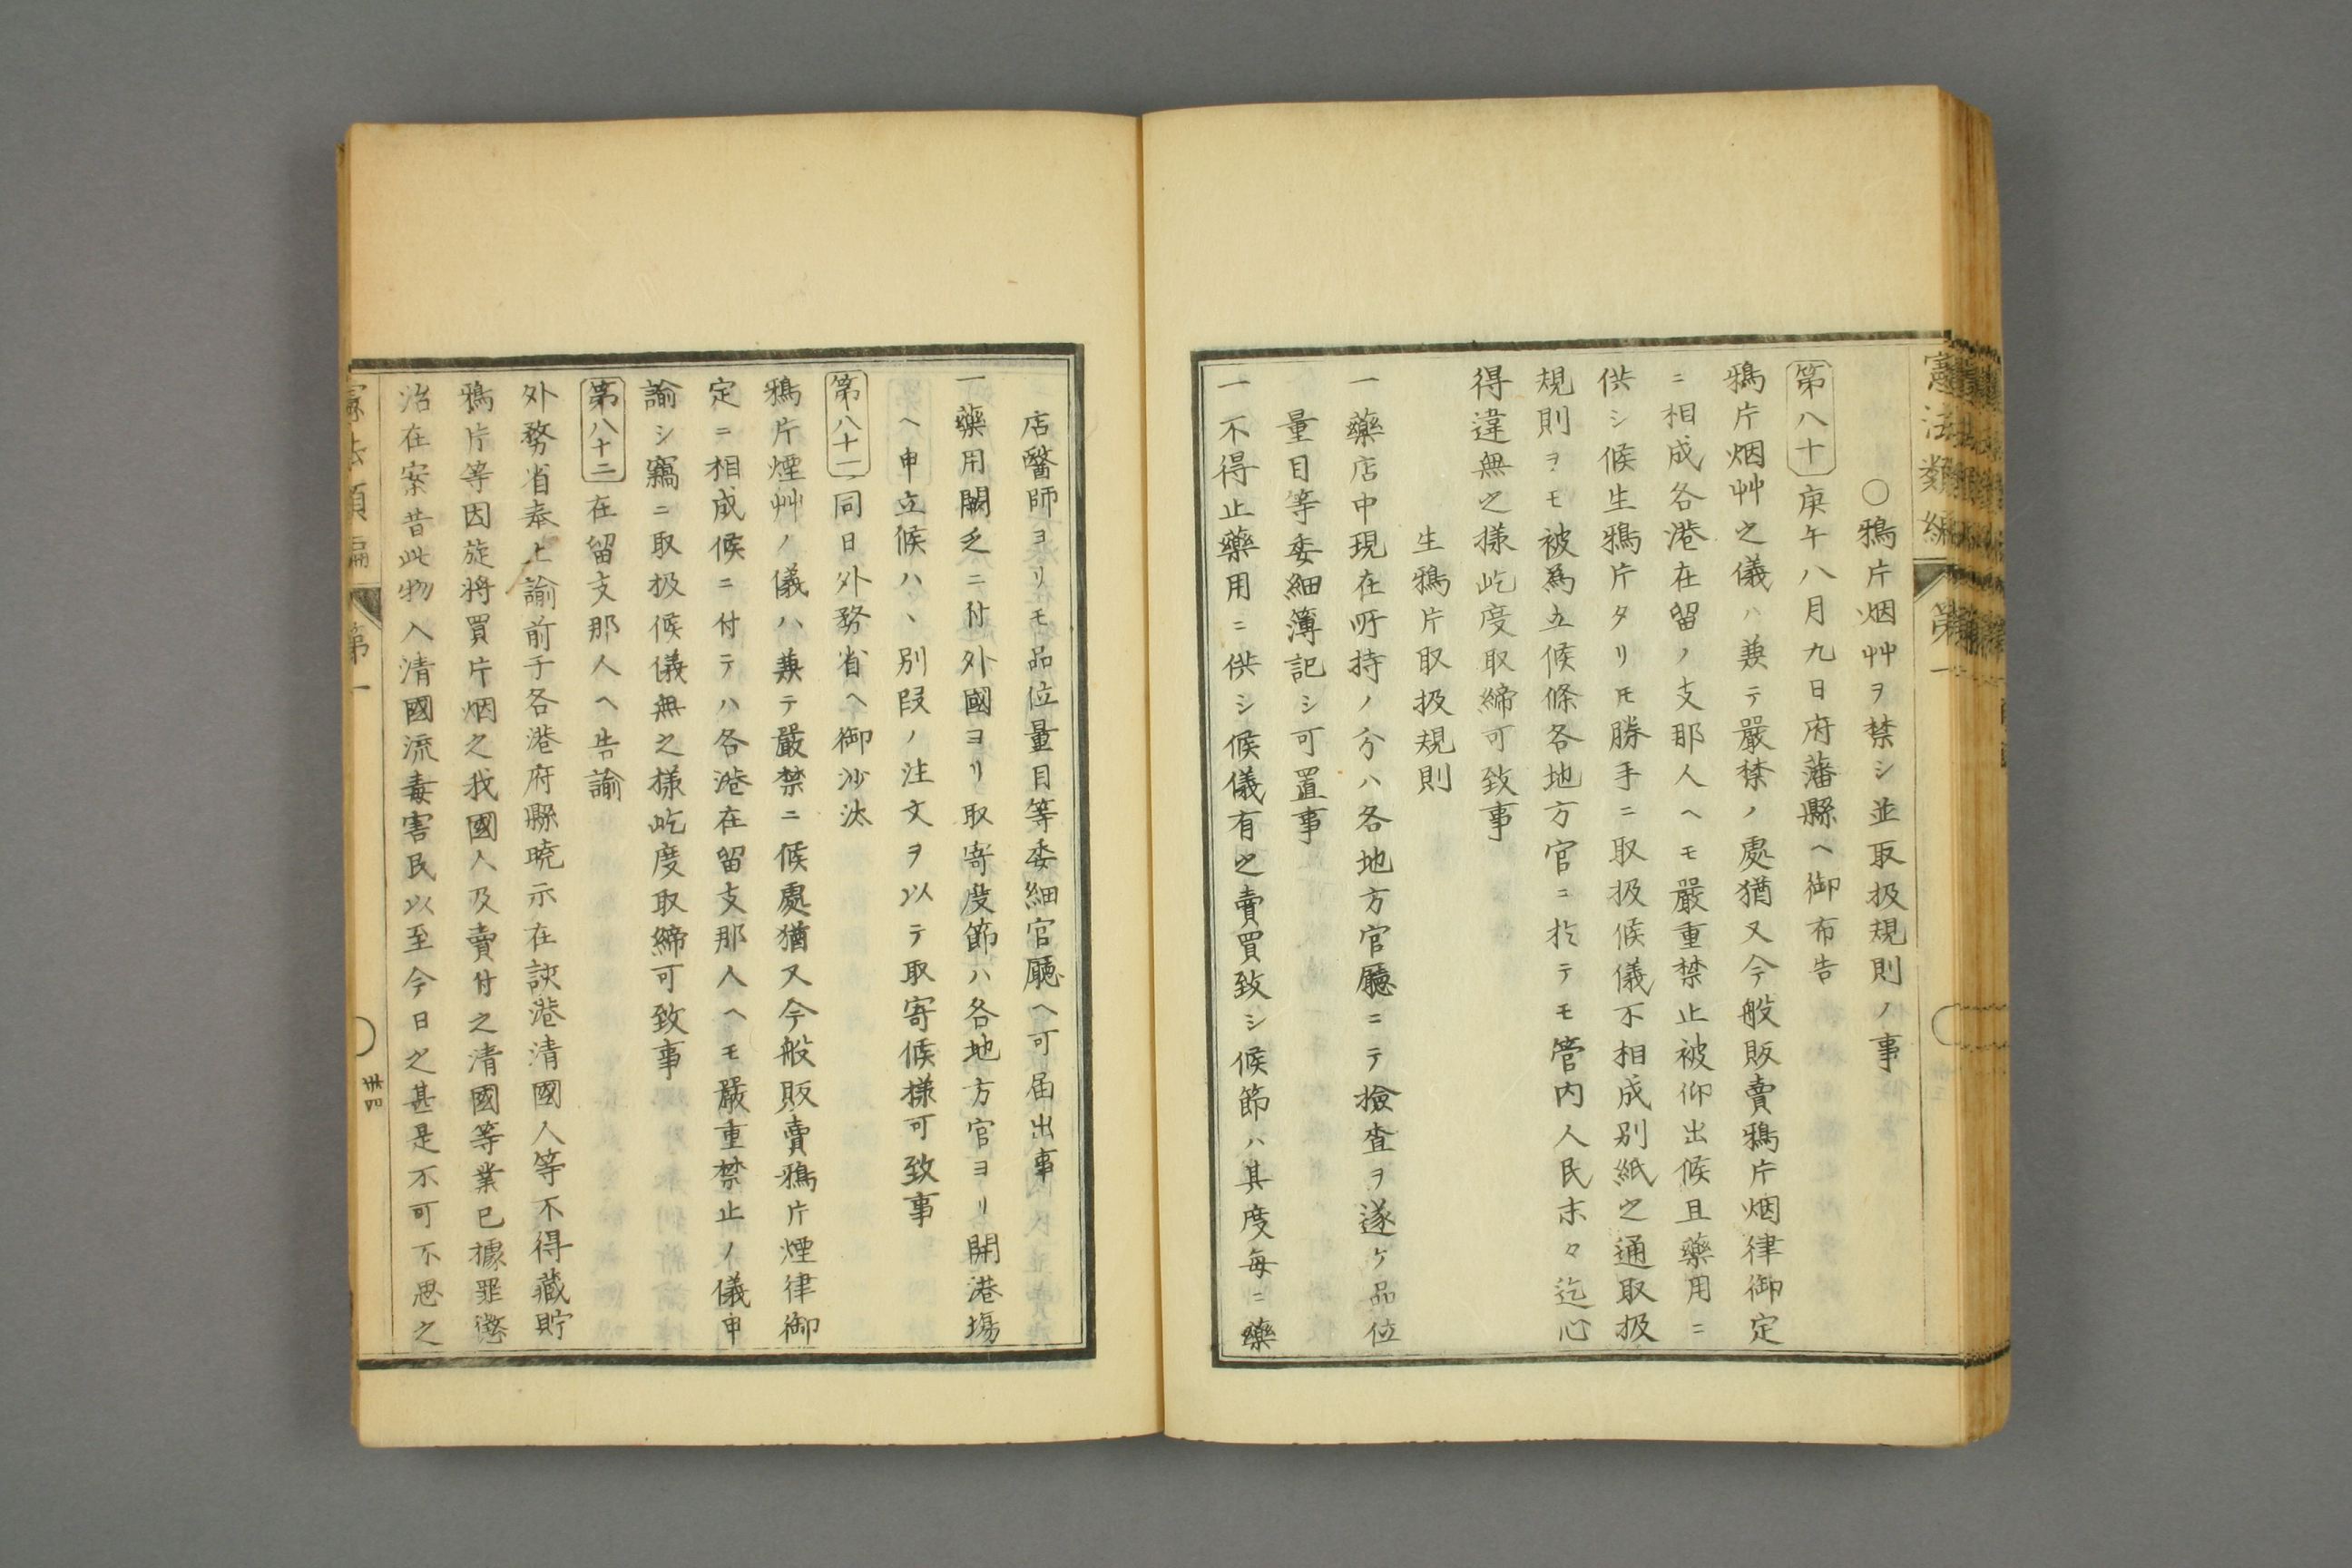 憲法類編
第一
○鴉片烟艸ヲ禁シ並取扱規則ノ事
第八十 庚午八月九日府藩縣ヘ御布告
鴉片烟艸之儀ハ兼テ嚴禁ノ處猶又今般販賣鴉片烟律御定
ニ相成各港在留ノ支那人ヘモ嚴重禁止被仰出候且藥用ニ
供シ候生鴉片タリモ勝手ニ取扱候儀不相成別紙之通取扱
規則ヲモ被爲立候條各地方官ニ於テモ管内人民末々迄心
得違無之様屹度取締可致事
生鴉片取扱規則
一藥店中現在所持ノ分ハ各地方官廳ニテ撿査ヲ遂ケ品位
量目等委細簿記シ可置事
一不得止藥用ニ供シ候儀有之賣買致シ候節ハ其度每ニ藥
店醫師ヨリモ品位量目等委細官廳ヘ可届出事
一藥用闕乏ニ付外國ヨリ取寄度節ハ各地方官ヨリ開港場
ヘ申立候ハヽ別段ノ注文ヲ以テ取寄候様可致事
第八十一 同日外務省ヘ御沙汰
鴉片煙艸ノ儀ハ兼テ嚴禁ニ候處猶又今般販賣鴉片煙律御
定ニ相成候ニ付テハ各港在留支那人ヘモ嚴重禁止ノ儀申
諭シ竊ニ取扱候儀無之様屹度取締可致事
第八十二 在留支那人ヘ告諭
外務省奉上諭前于各港府縣曉示在該港清國人等不得藏貯
鴉片等因旋將買片烟之我國人及賣付之清國等業已據罪懲
治在案昔此物入清國流毒害民以至今日之甚是不可不思之
憲法類編
第一
卅四